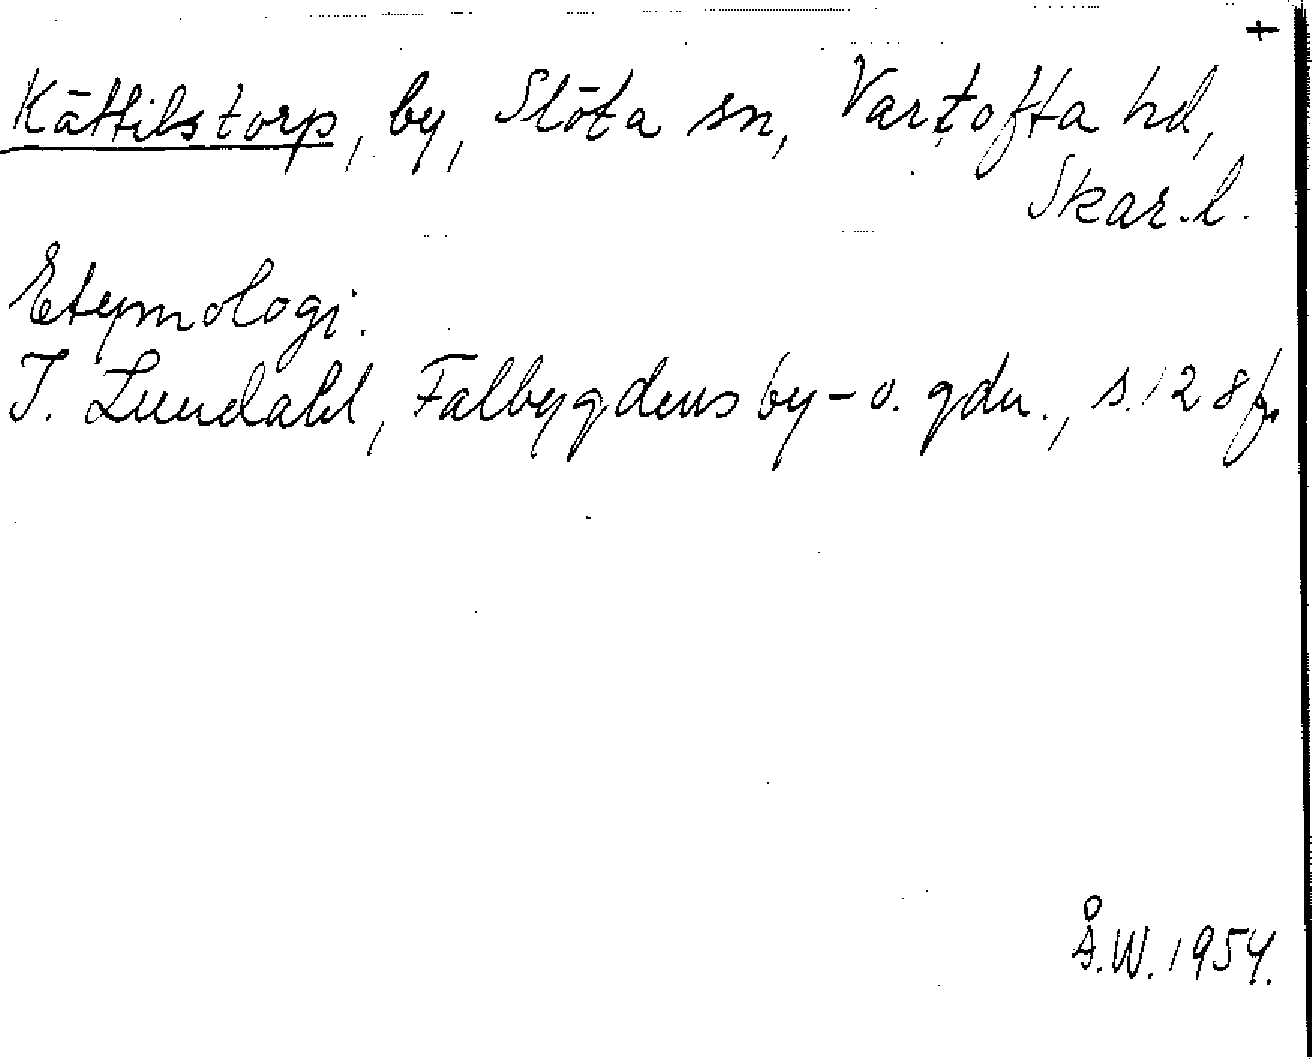 +
Kättilstorp, by, Slöta sn, Vartofta hd,
Skar. l.
Etymologi.
I. Lundahl, Falbygdens by- o. gdn., s. 128f.
Å.W. 1954.